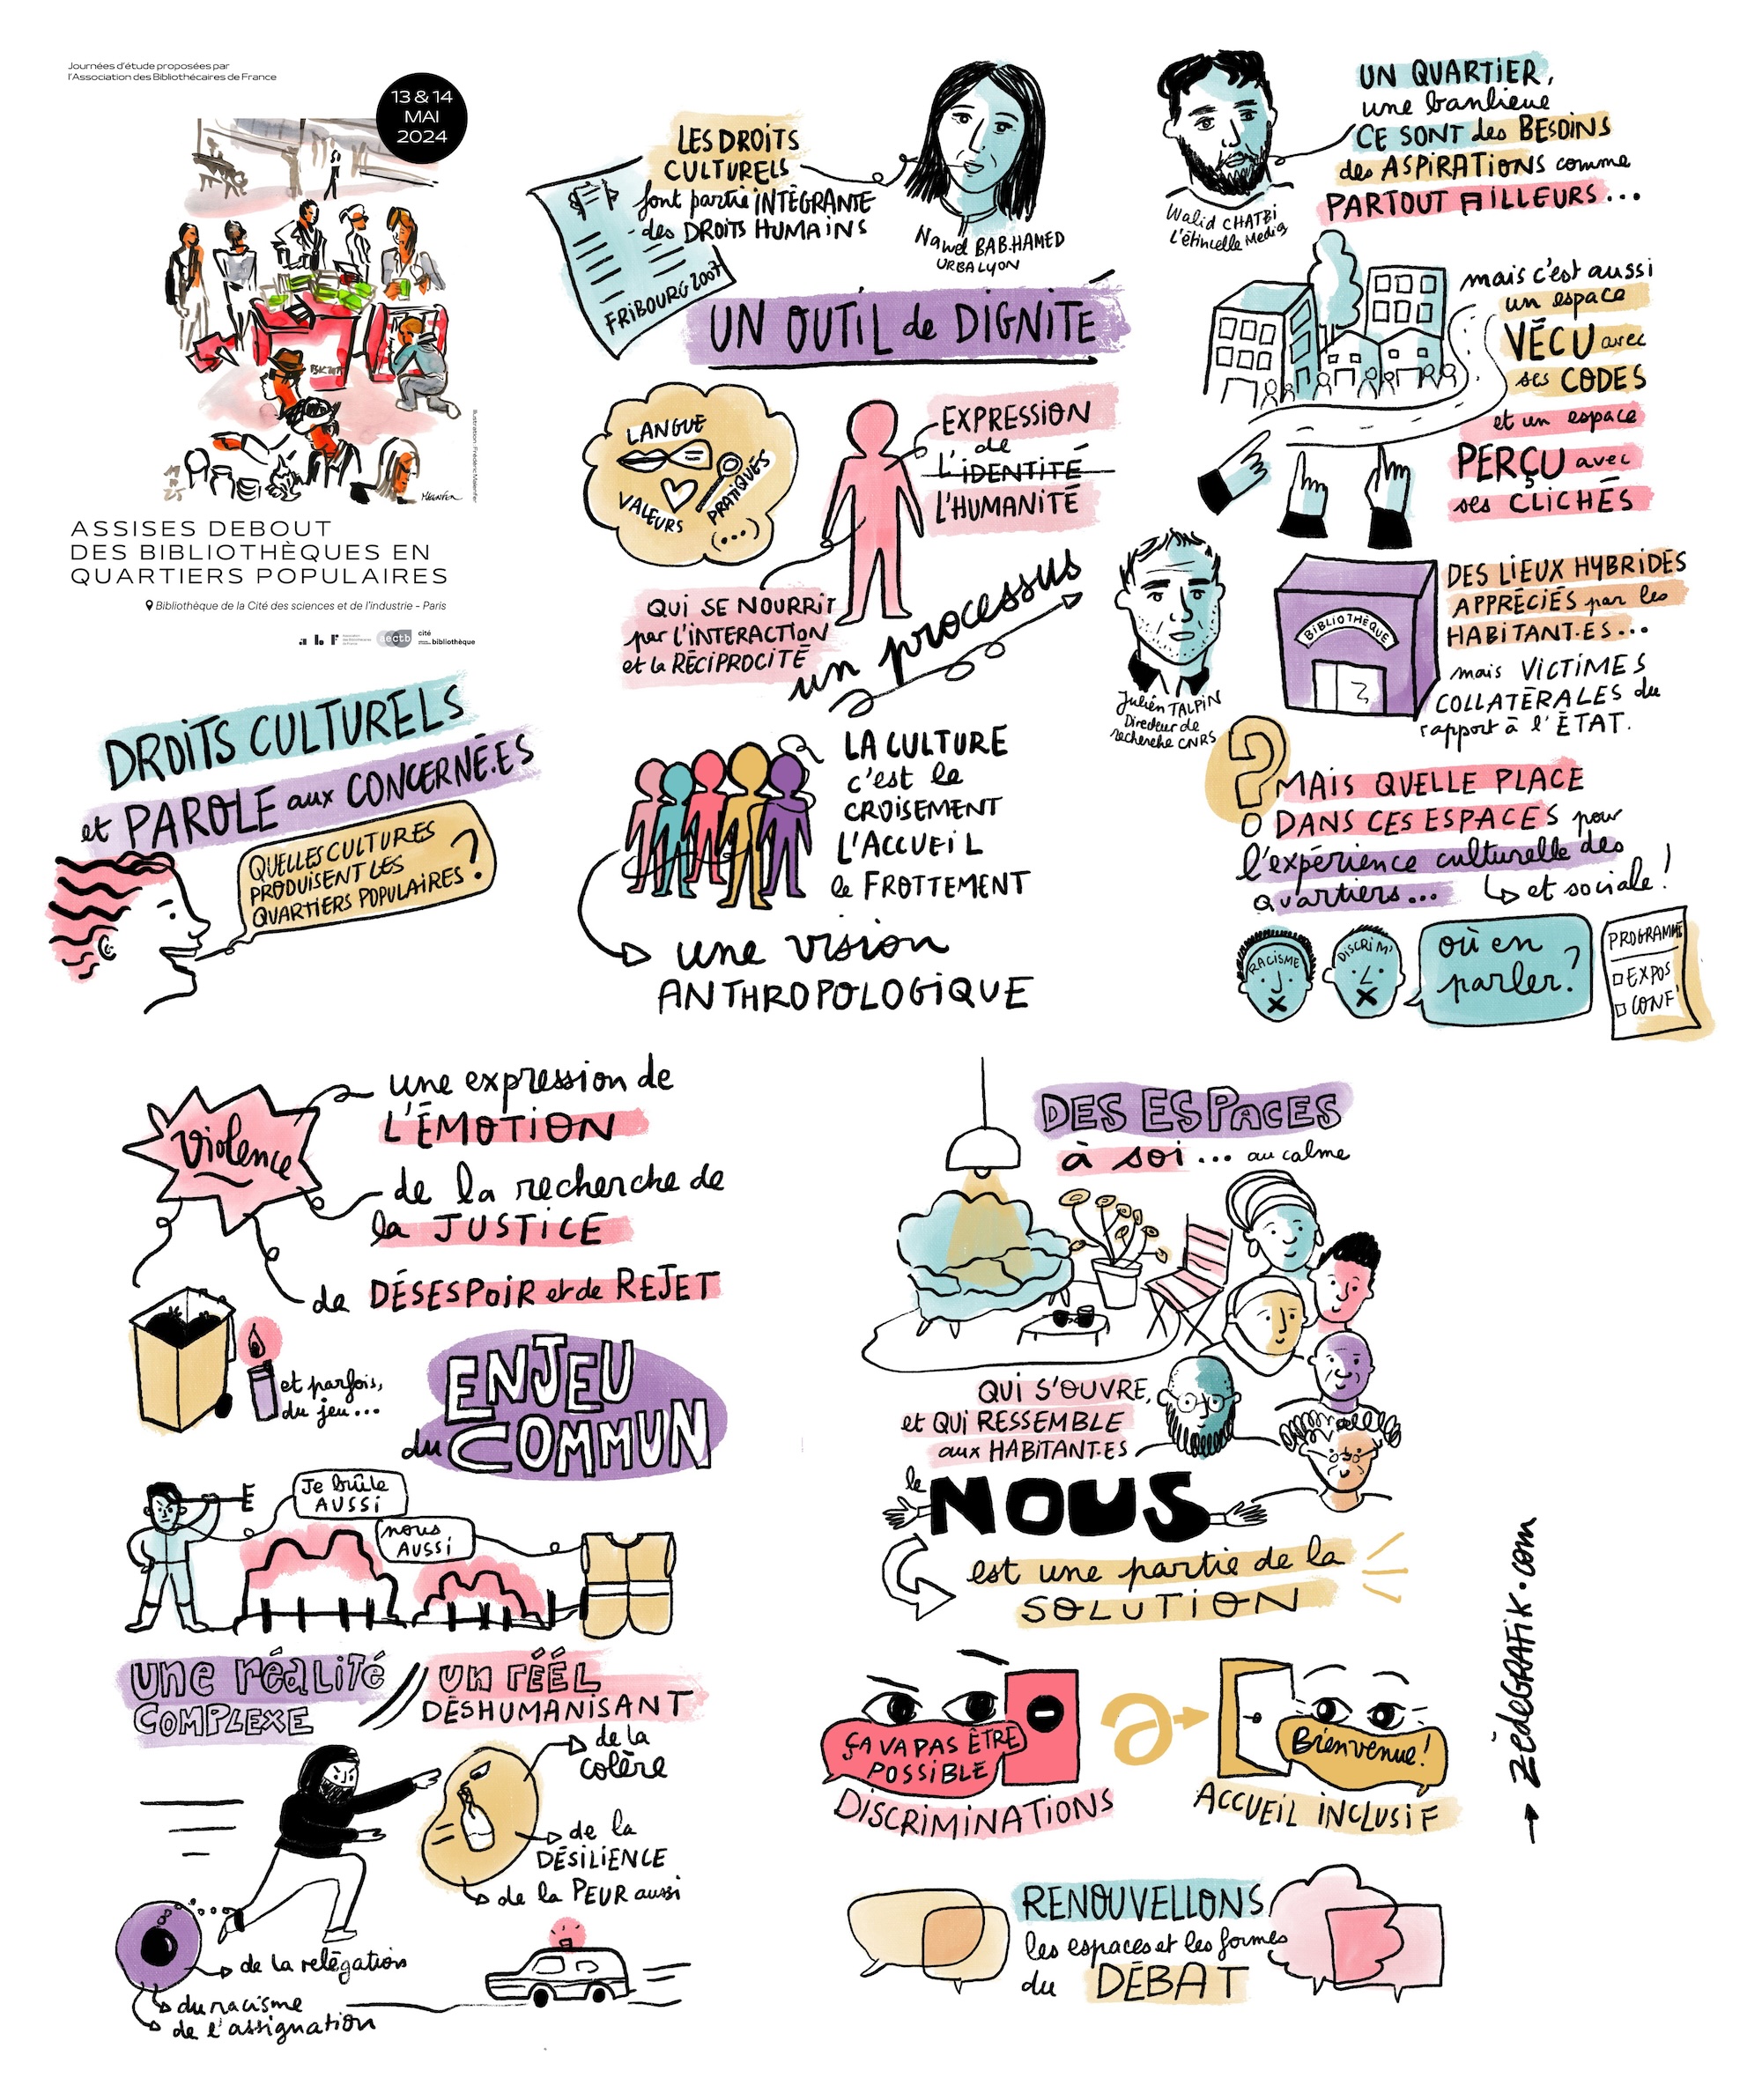 Journées d'étude proposées par
l'Association des Bibliothécaires de France
13 & 14
MAI
2024
ASSISES DEBOUT
DES BIBLIOTHÈQUES EN
QUARTIERS POPULAIRES
Bibliothèque de la Cité des sciences et de l'industrie - Paris
abf
cité
bibliothèque
DROITS CULTURELS
et PAROLE aux CONCERNÉ.ES
QUELLES CULTURES
PRODUISENT LES
QUARTIERS POPULAIRES ?
LES DROITS
CULTURELS
font partie INTÉGRANTE
des DROITS HUMAINS
FRIBOURG 2007
Nawel BAB.HAMED
URBALYON
UN OUTIL de DIGNITÉ
LANGUE
VALEURS
PRATIQUES
(...)
EXPRESSION
de
L'IDENTITÉ
L'HUMANITÉ
QUI SE NOURRIT
par L'INTERACTION
et la RÉCIPROCITÉ
un processus
LA CULTURE
c'est le
CROISEMENT
L'ACCUEIL
le FROTTEMENT
une vision
ANTHROPOLOGIQUE
Walid CHATBI
L'étincelle Media
UN QUARTIER,
une banlieue
CE SONT des BESOINS
des ASPIRATIONS comme
PARTOUT AILLEURS...
mais c'est aussi
un espace
VÉCU avec
ses CODES
et un espace
PERÇU avec
ses CLICHÉS
Julien TALPIN
Directeur de
recherche CNRS
BIBLIOTHÈQUE
DES LIEUX HYBRIDES
APPRÉCIÉS par les
HABITANT.ES...
mais VICTIMES
COLLATÉRALES du
rapport à l'ÉTAT.
?
MAIS QUELLE PLACE
DANS CES ESPACES pour
l'expérience culturelle des
quartiers...
et sociale !
RACISME
DISCRIM'
où en
parler ?
PROGRAMME
EXPOS
CONF'
Violence
une expression de
L'ÉMOTION
de la recherche de
la JUSTICE
de DÉSESPOIR et de REJET
et parfois,
du jeu...
ENJEU
du COMMUN
Je brûle
AUSSI
nous
AUSSI
une réalité
COMPLEXE
UN RÉÉL
DÉSHUMANISANT
de la
colère
de la
DÉSILIENCE
de la PEUR aussi
de la relégation
du racisme
de l'assignation
DES ESPACES
à soi... au calme
QUI S'OUVRE,
et QUI RESSEMBLE
aux HABITANT.ES
le NOUS
est une partie de la
SOLUTION
ÇA VA PAS ÊTRE
POSSIBLE
DISCRIMINATIONS
Bienvenue !
ACCUEIL INCLUSIF
RENOUVELLONS
les espaces et les formes
du DÉBAT
zédeGRAFIK.com